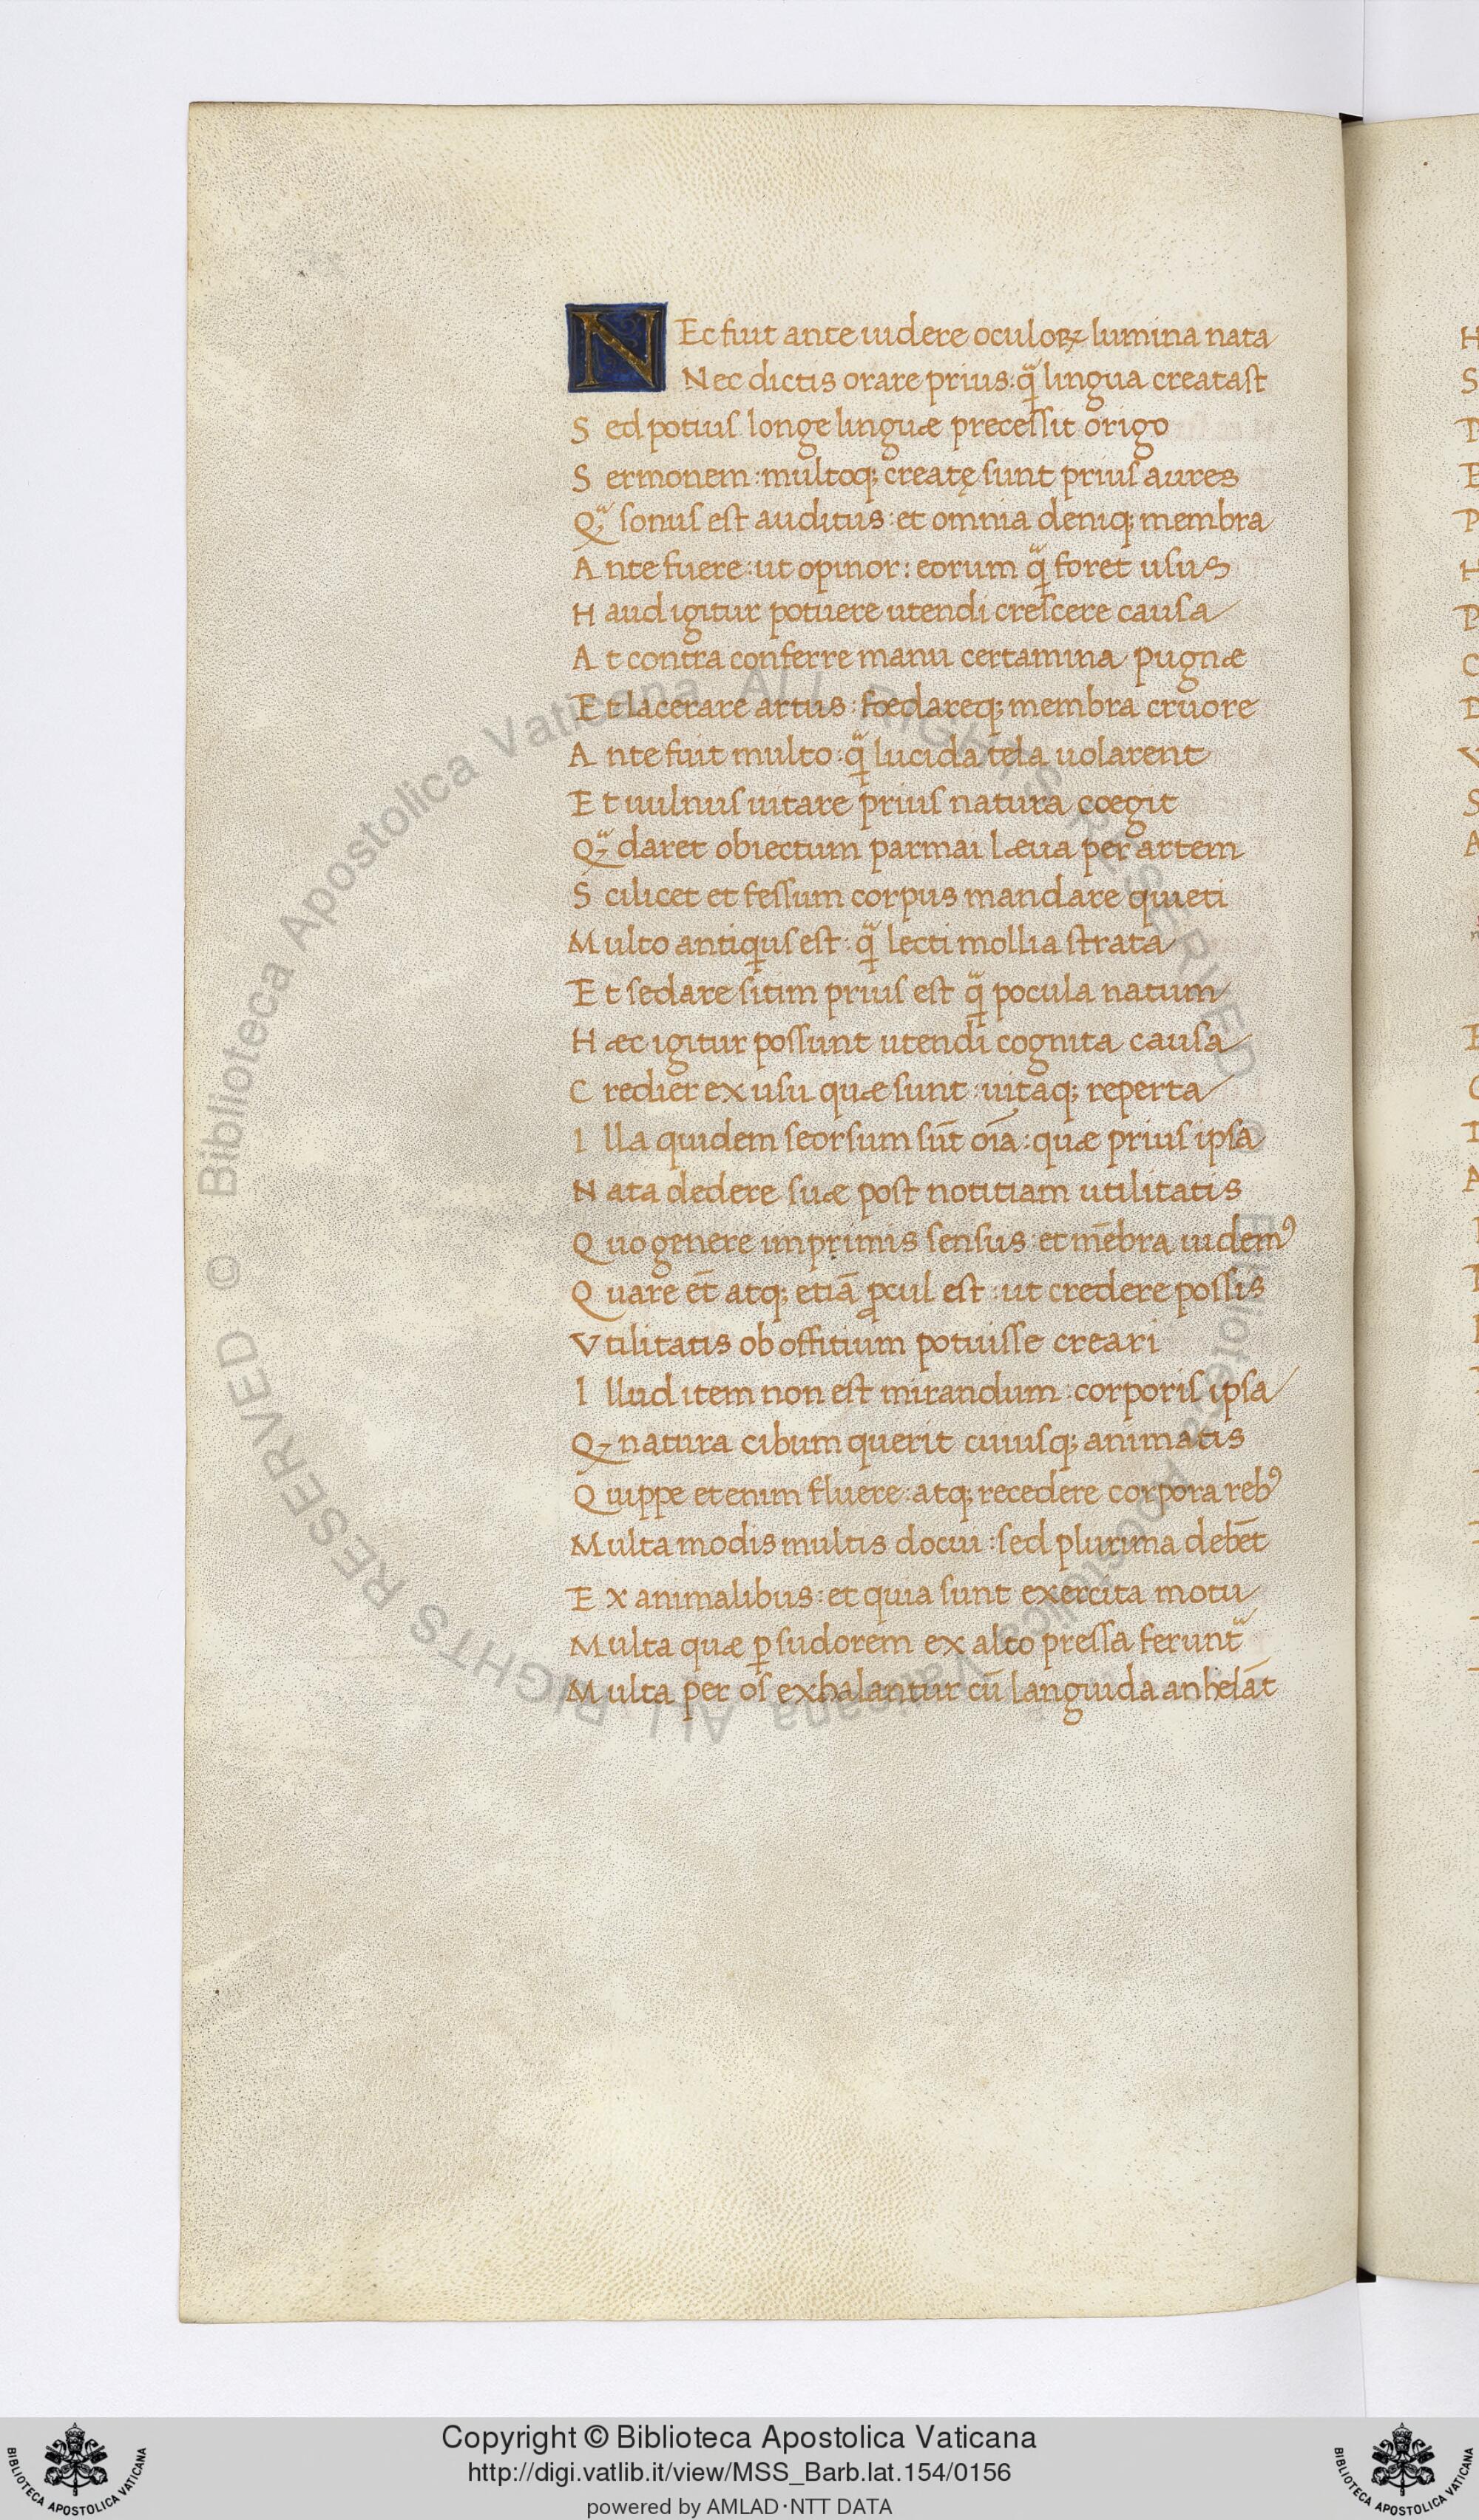 NEc fuit ante uidere oculoꝝ lumina nata
Nec dictis orare prius: q̃ lingua creatast
Sed potius longe linguæ precessit origo
Sermonem: multoq; creatę sunt prius aures
Q̃ sonus est auditus: et omnia deniq; membra
Ante fuere: ut opinor: eorum q̃ foret usus
Haud igitur potuere utendi crescere causa
At contra conferre manu certamina pugnæ
Et lacerare artus: fœdareq; membra cruore
Ante fuit multo: q̃ lucida tela uolarent
Et uulnus uitare prius natura cœgit
Q̃ daret obiectum parmai læua per artem
Scilicet et fessum corpus mandare quieti
Multo antiqus est: q̃ lecti mollia strata
Et sedare sitim prius est q̃ pocula natum
Hæc igitur possunt utendi cognita causa
Credier ex usu quæ sunt: uitaq; reperta
Illa quidem seorsum sūt oīa: quæ prius ipsa
Nata dedere suæ post notitiam utilitatis
Quo genere imprimis sensus: et mēbra uidemꝰ
Quare et̄ atq; etiā ꝓcul est: ut credere possis
Vtilitatis ob offitium potuisse creari
Illud item non est mirandum: corporis ipsa
Qꝫ natura cibum querit cuiusq; animatis
Quippe etenim fluere: atq; recedere corpora rebꝰ
Multa modis multis docui: sed plurima debēt
Ex animalibus: et quia sunt exercita motu
Multa quæ ꝑ sudorem ex alto pressa ferunt᷑
Multa per os exhalantur cū languida anhelāt
H
S
© Biblioteca Apostolica Vaticana ALL RIGHTS RESERVED © Biblioteca Apostolica Vaticana ALL RIGHTS RESERVED
Copyright © Biblioteca Apostolica Vaticana
http://digi.vatlib.it/view/MSS_Barb.lat.154/0156
powered by AMLAD·NTT DATA
BIBLIOTECA APOSTOLICA VATICANA
BIBLIOTECA APOSTOLICA VATICANA